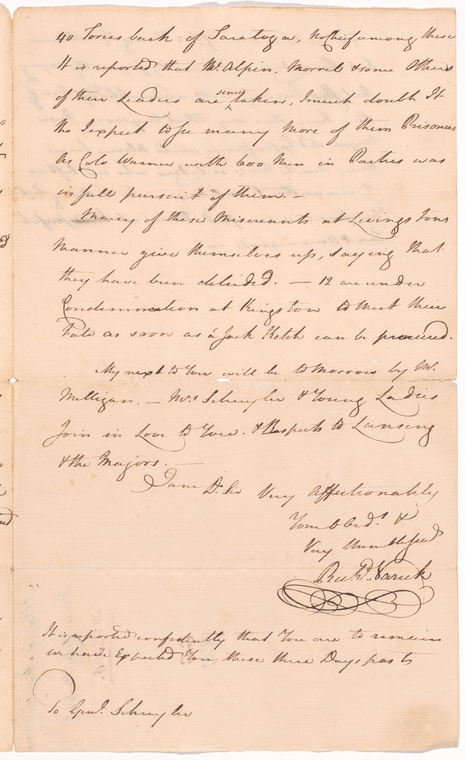 40 Tories back of Saratoga, No Chief among these
It is reported that Mc Alpin, Morrel & some Others
of their Leaders are since taken, I much doubt It
tho I expect to see many more of them Prisoners
As Colo Warner with 600 Men in Parties was
in full pursuit of them. —
Many of these Miscreants at Livingstons
Mannor give themselves up, saying that
they have been deluded. — 12 are under
Condemnation at Kingston to meet their
Fate as soon as a Jack Ketch can be procured.
My next to You will be to Morrow by Mr.
Milligan. — Mrs Schuyler & Young Ladies
Join in Love to You. & Respects to Lansing
& the Majors. —
I am Dr Sir Very Affectionably
Your Obedt. &
Very Humble
Richd. Varick
It is reported confidently that You are to remain
we have Expected You these three Days past
To Genl. Schuyler